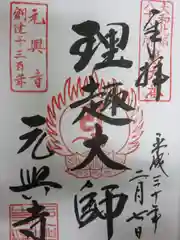 奉拝
平成三十年
二月七日
理趣大師
元興寺
元興寺
創建千三百年